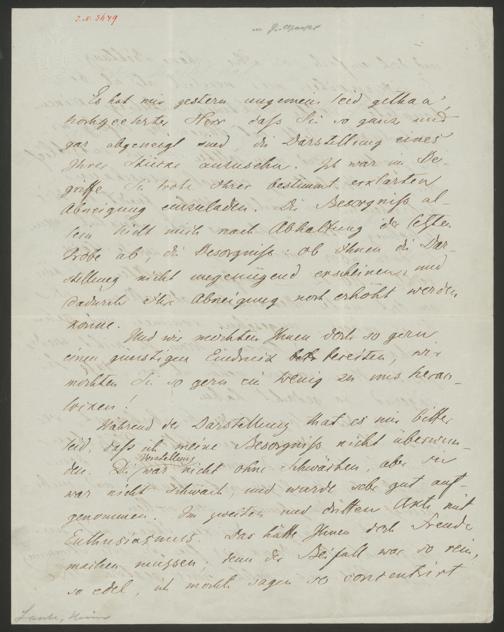 I.N. 5449
Es hat mir gestern ungemein leid gethan,
hochgeehrter Herr, daß Sie so ganz und
gar abgeneigt sind die Darstellung eines
Ihrer Stücke anzusehn. Ich war im Be-
griffe, Sie trotz Ihrer bestimmt erklärten
Abneigung einzuladen. Die Besorgniß al-
lein hielt mich nach Abhaltung der letzten
Probe ab, die Besorgniß: ob Ihnen die Dar-
stellung nicht ungenügend erscheinen und
dadurch Ihre Abneigung noch erhöht werden
könne.
Und wir möchten Ihnen doch so gern
einen günstigen Eindruck bereiten, wir
möchten Sie so gern ein wenig zu uns heran-
locken!
Während der Darstellung that es mir bitter
leid, daß ich meine Besorgniß nicht überwun-
den. Die Vorstellung war nicht ohne Schwächen, aber sie
war nicht schwach, und wurde sehr gut auf-
genommen. Im zweiten und dritten Akte mit
Enthusiasmus. Das hätte Ihnen doch Freude
machen müssen, denn der Beifall war so rein,
so edel, ich möchte sagen so concentrirt
Laube, Heinr